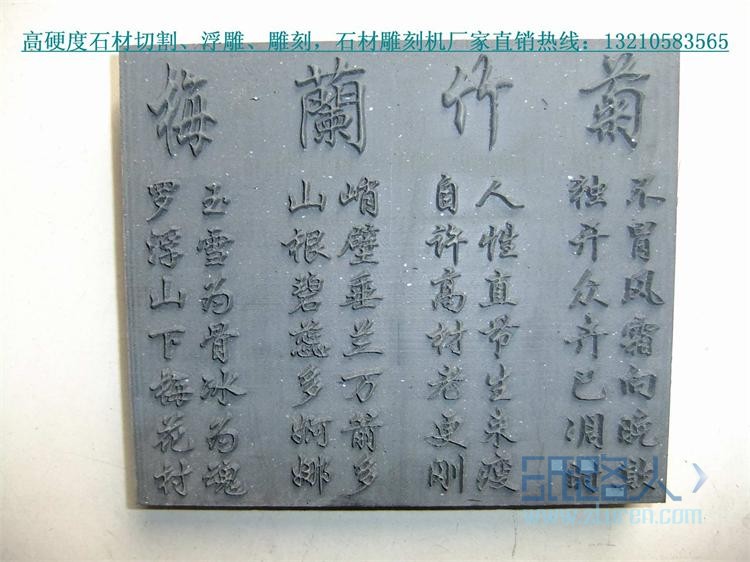 高硬度石材切割、浮雕、雕刻，石材雕刻机厂家直销热线：13210583565
梅
玉雪为骨冰为魂
罗浮山下梅花村
蘭
峭壁垂兰万箭多
山根碧蕊多婀娜
竹
人性直节生来瘦
自许高材老更刚
菊
不冒风霜向晚欺
独开众卉已凋时